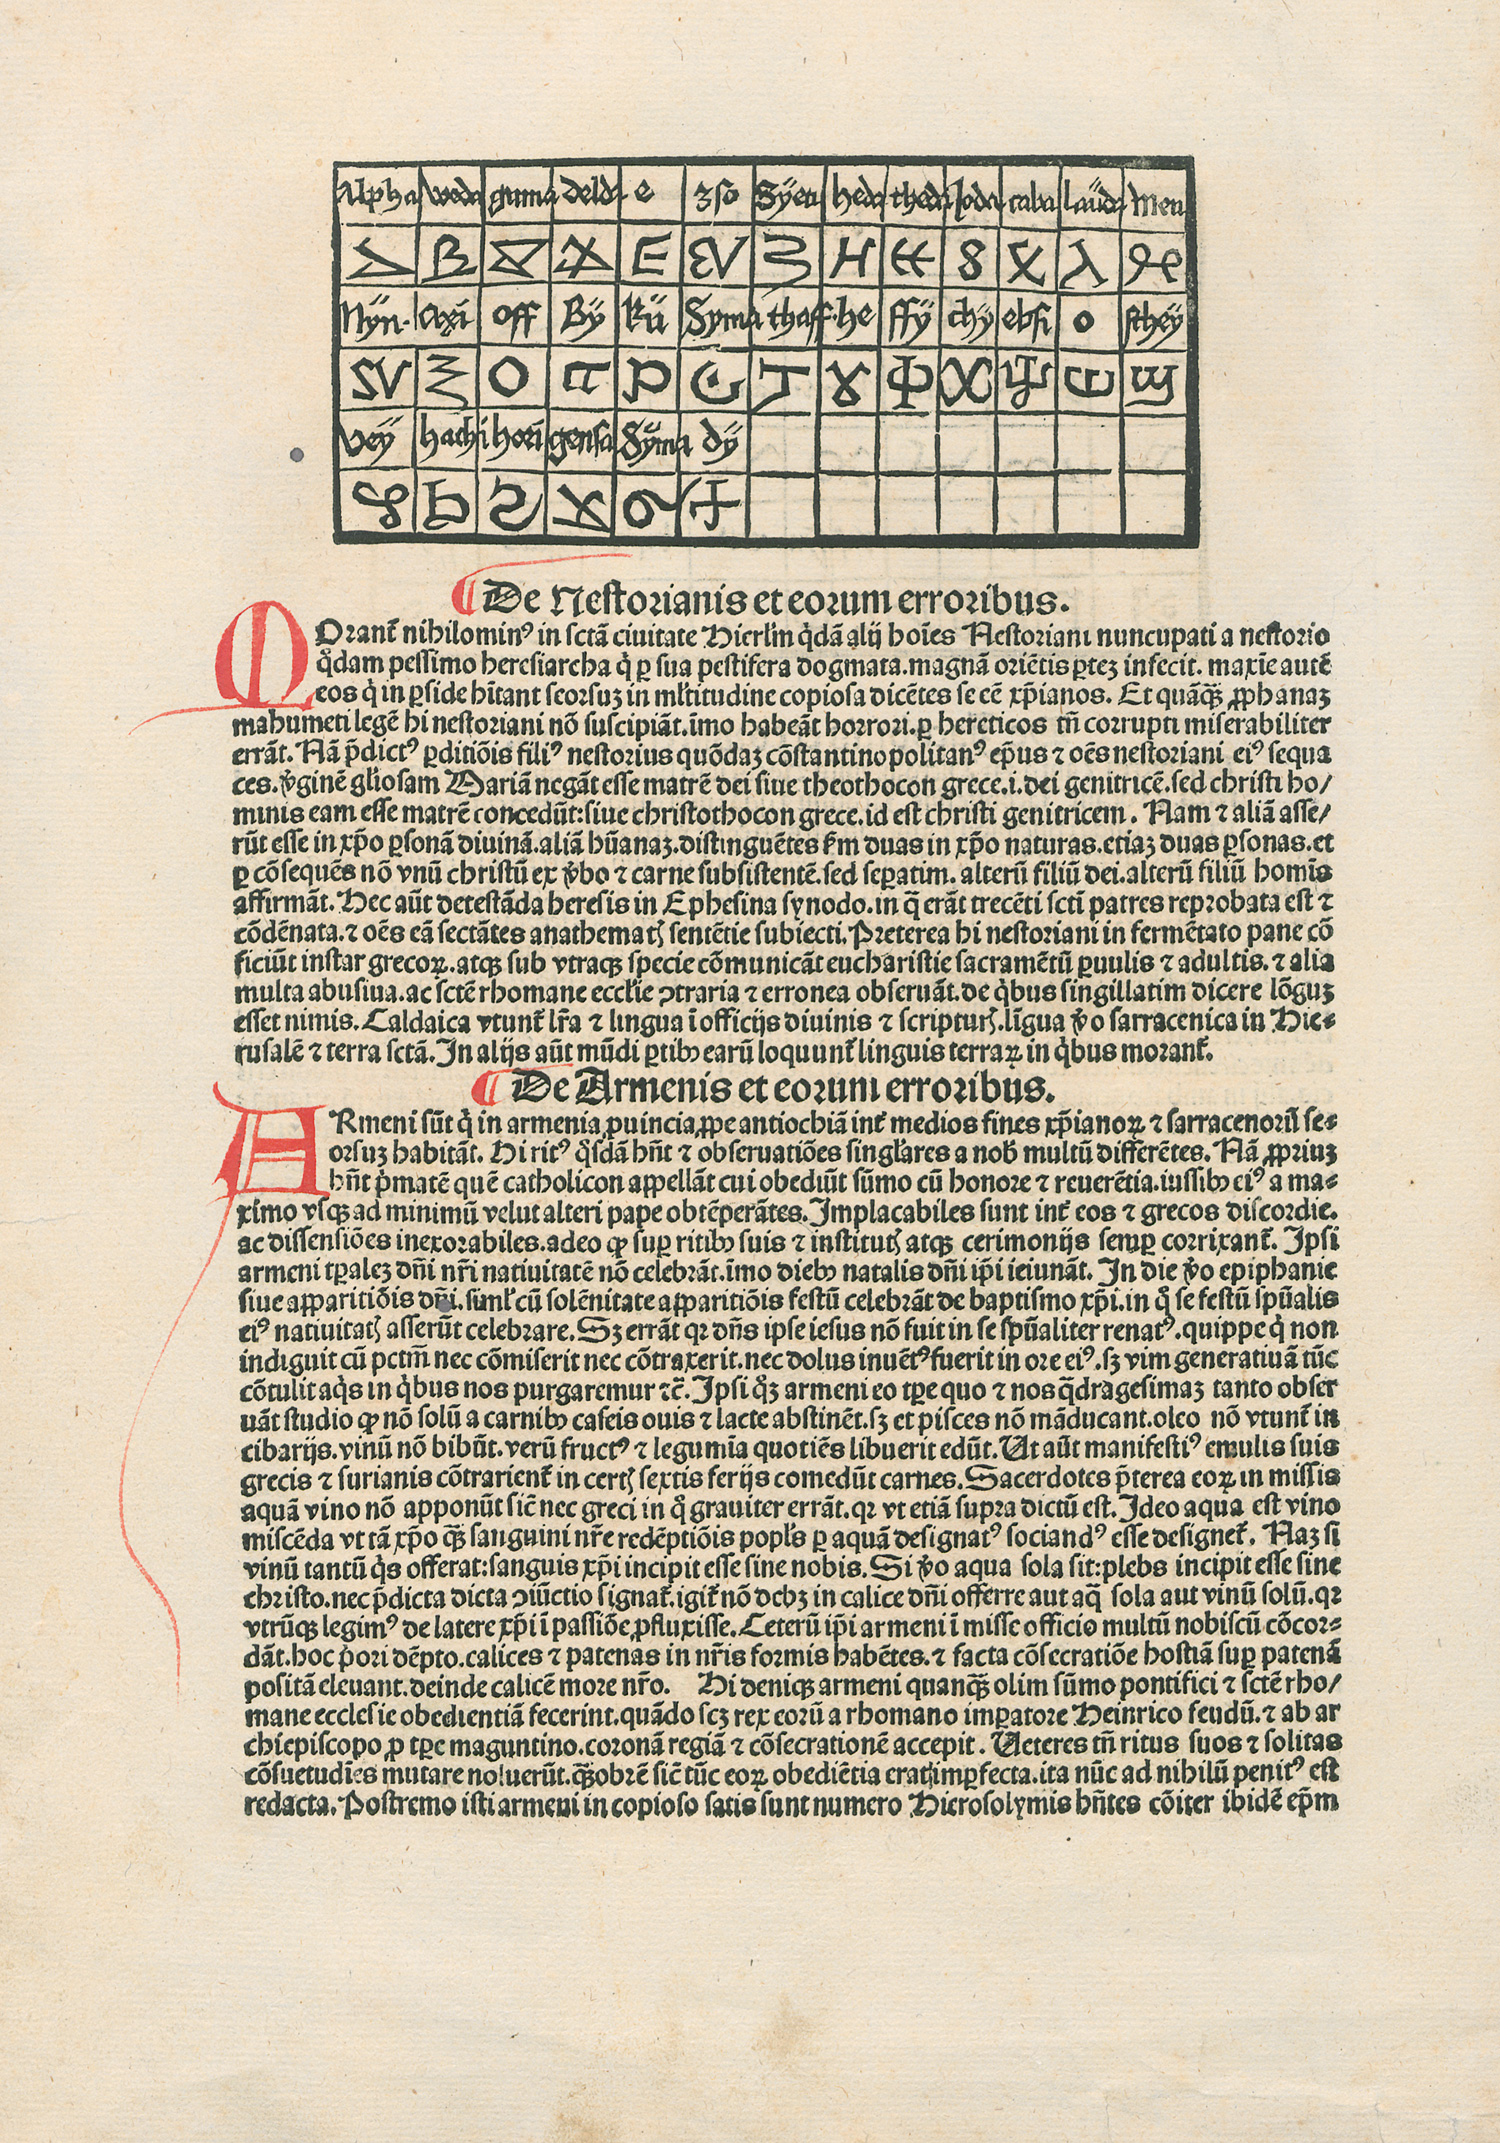 Alpha woda guma delda e zso Syetu heda theda Joda caba lauda Men
Ⲁ Ⲃ Ⲅ Ⲇ Ⲉ Ⲋ Ⲍ Ⲏ Ⲑ Ⲓ Ⲕ Ⲗ Ⲙ
Nÿn· axi off Bÿ Rü Syma thaff he ffÿ chÿ ebsi o sthey
Ⲛ Ⲝ Ⲟ Ⲡ Ⲣ Ⲥ Ⲧ Ⲩ Ⲫ Ⲭ Ⲯ Ⲱ Ϣ
vey hachi hori gensa Sÿma dÿ
Ϥ Ϧ Ϩ Ϫ Ϭ Ϯ
¶De Nestorianis et eorum erroribus.
MOrant᷑ nihilominꝰ in sctā ciuitate Hierlm̄ qͥdā alij hoīes Nestoriani nuncupati a nestorio
qͦdam pessimo heresiarcha qͥ ꝑ sua pestifera dogmata.magnā oriētis ꝑtez infecit. maxīe autē
eos qͥ in ꝑside hītant seorsuz in ml̕titudine copiosa dicētes se cē xp̄ianos. Et quāqȝ̄ ꝓphanaz
mahumeti legē hi nestoriani nō suscipiāt.īmo habeāt horrori.ꝑ hereticos tn̄ corrupti miserabiliter
errāt. Nā p̄dictꝰ ꝑditiōis filiꝰ nestorius quōdaz cōstantinopolitanꝰ ep̄us ⁊ oēs nestoriani eiꝰ sequa
ces. ꝟginē gl̕iosam Mariā negāt esse matrē dei siue theothocon grece.i.dei genitricē.sed christi ho/
minis eam esse matrē concedūt:siue christothocon grece.id est christi genitricem. Nam ⁊ aliā asse/
rūt esse in xp̄o ꝑsonā diuinā.aliā hūanaz.distinguētes ẜm duas in xp̄o naturas.etiaz duas ꝑsonas.et
ꝑ cōsequēs nō vnū christū ex ꝟbo ⁊ carne subsistentē.sed seꝑatim. alterū filiū dei.alterū filiū homīs
affirmāt. Hec aūt detestāda heresis in Ephesina synodo.in q̄ erāt trecēti scti patres reprobata est ⁊
cōdēnata.⁊ oēs eā sectātes anathematꝭ sentētie subiecti.Preterea hi nestoriani in fermētato pane cō
ficiūt instar grecoꝝ.atqꝫ sub vtraqꝫ specie cōmunicāt eucharistie sacramētū ꝑuulis ⁊ adultis.⁊ alia
multa abusiua.ac sctē rhomane eccl̕ie ꝯtraria ⁊ erronea obseruāt.de qͥbus singillatim dicere lōguz
esset nimis. Caldaica vtunt᷑ lr̄a ⁊ lingua ī officijs diuinis ⁊ scripturꝭ.līgua ꝟo sarracenica in Hie-
rusalē ⁊ terra sctā. In alijs aūt mūdi ꝑtibꝰ earū loquunt᷑ linguis terraꝝ in qͥbus morant᷑.
¶De Armenis et eorum erroribus.
ARmeni sūt qͥ in armenia ꝓuincia ꝓpe antiochiā int᷑ medios fines xp̄ianoꝝ ⁊ sarracenorū se-
orsuz habitāt. Hi ritꝰ qͦsdā hn̄t ⁊ obseruatiōes singl̕ares a nob̕ multū differētes. Nā ꝓpriuz
hn̄t pͥmatē quē catholicon appellāt cui obediūt sūmo cū honore ⁊ reuerētia.iussibꝰ eiꝰ a ma-
ximo vsqꝫ ad minimū velut alteri pape obtēperātes.Implacabiles sunt int᷑ eos ⁊ grecos discordie.
ac dissensiōes inexorabiles.adeo ꝙ suꝑ ritibꝰ suis ⁊ institutꝭ atqꝫ cerimonijs semꝑ corrixant᷑. Ipsi
armeni tꝑalez dn̄i nr̄i natiuitatē nō celebrāt.īmo diebꝰ natalis dn̄i ip̄i ieiunāt. In die ꝟo epiphanie
siue apparitiōis dn̄i.siml̕ cū solēnitate apparitiōis festū celebrāt de baptismo xp̄i.in qͦ se festū spūalis
eiꝰ natiuitatꝭ asserūt celebrare.Sꝫ errāt qꝛ dn̄s ipse iesus nō fuit in se spūaliter renatꝰ.quippe qͥ non
indiguit cū pctm̄ nec cōmiserit nec cōtraxerit.nec dolus inuētꝰ fuerit in ore eiꝰ.sꝫ vim generatiuā tūc
cōtulit aqͥs in qͥbus nos purgaremur ⁊c̄. Ipsi qͦꝫ armeni eo tꝑe quo ⁊ nos q̄dragesimaz tanto obser
uāt studio ꝙ nō solū a carnibꝰ caseis ouis ⁊ lacte abstinēt.sꝫ et pisces nō māducant.oleo nō vtunt᷑ in
cibarijs.vinū nō bibūt.verū fructꝰ ⁊ legumīa quotiēs libuerit edūt. Ut aūt manifestiꝰ emulis suis
grecis ⁊ surianis cōtrarient᷑ in certꝭ sextis ferijs comedūt carnes. Sacerdotes p̄terea eoꝝ in missis
aquā vino nō apponūt sic̄ nec greci in qͦ grauiter errāt.qꝛ vt etiā supra dictū est. Ideo aqua est vino
miscēda vt tā xp̄o qȝ̄ sanguini nr̄e redēptiōis popl̕s ꝑ aquā designatꝰ sociandꝰ esse designet᷑. Naz si
vinū tantū qͥs offerat:sanguis xp̄i incipit esse sine nobis. Si ꝟo aqua sola sit:plebs incipit esse sine
christo.nec p̄dicta dicta ꝯiūctio signat᷑.igit᷑ nō debꝫ in calice dn̄i offerre aut aq̄ sola aut vinū solū.qꝛ
vtrūqꝫ legimꝰ de latere xp̄i ī passiōe ꝓfluxisse. Ceterū ip̄i armeni ī misse officio multū nobiscū cōcor-
dāt.hoc pͥori dēpto.calices ⁊ patenas in nr̄is formis habētes.⁊ facta cōsecratiōe hostiā suꝑ patenā
positā eleuant.deinde calicē more nr̄o. Hi deniqꝫ armeni quanqȝ̄ olim sūmo pontifici ⁊ sctē rho/
mane ecclesie obedientiā fecerint.quādo scꝫ rex eorū a rhomano imꝑatore Heinrico feudū.⁊ ab ar
chiepiscopo ꝓ tꝑe maguntino.coronā regiā ⁊ cōsecrationē accepit. Ueteres tn̄ ritus suos ⁊ solitas
cōsuetudīes mutare noluerūt.qȝ̄obrē sic̄ tūc eoꝝ obediētia erat imꝑfecta.ita nūc ad nihilū penitꝰ est
redacta. Postremo isti armeni in copioso satis sunt numero Hierosolymis hn̄tes cōiter ibidē ep̄m